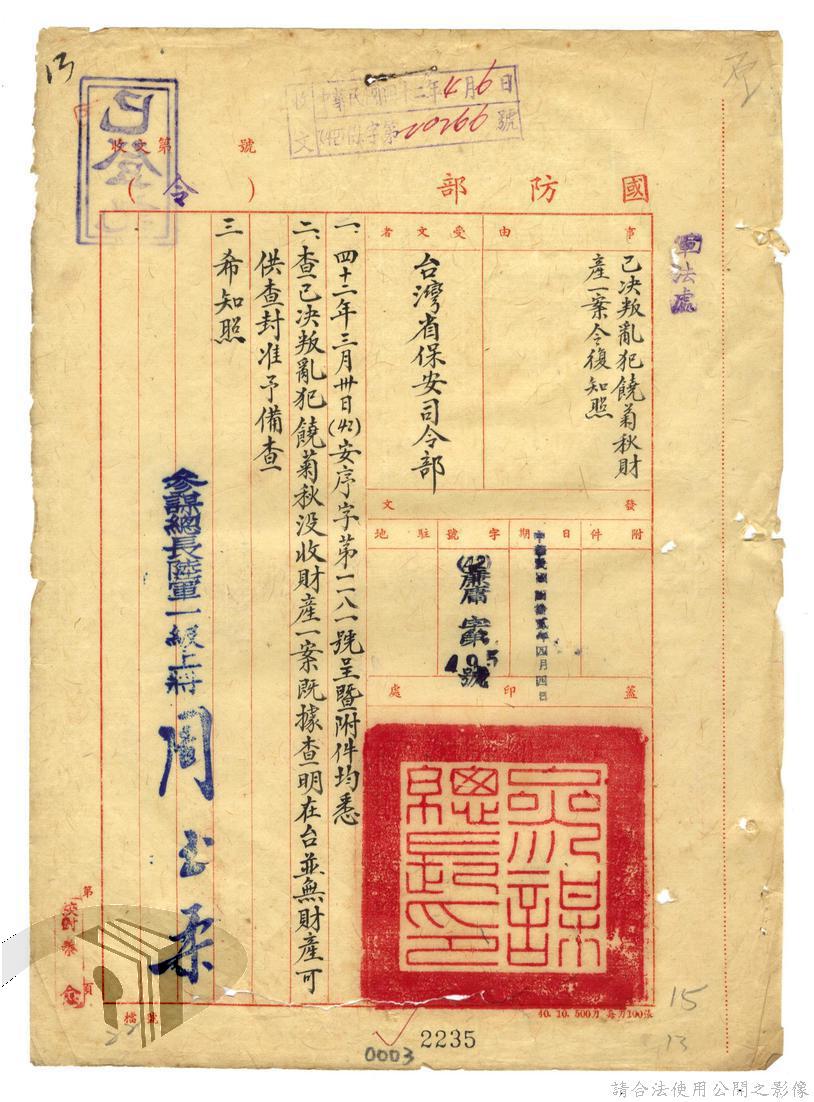 13
已登
收文 中華民國四十二年4月6日
(42)保字第20266號
收文第 號
國防部
(令)
軍法處
事由
已決叛亂犯饒菊秋財
產一案令復知照
受文者
台灣省保安司令部
發文
附件
日期
中華民國肆拾貳年四月四日
字號
(42)廉庸字第
495號
駐地
蓋印處
參謀總長印
一、四十二年三月卅日(42)安序字第一二八一號呈暨附件均悉
二、查已決叛亂犯饒菊秋沒收財產一案既據查明在台並無財產可
供查封准予備查
三、希知照
參謀總長陸軍一級上將周至柔
第 頁
檔號
40. 10. 500刀 每刀100張
2235
0003
15
13
請合法使用公開之影像